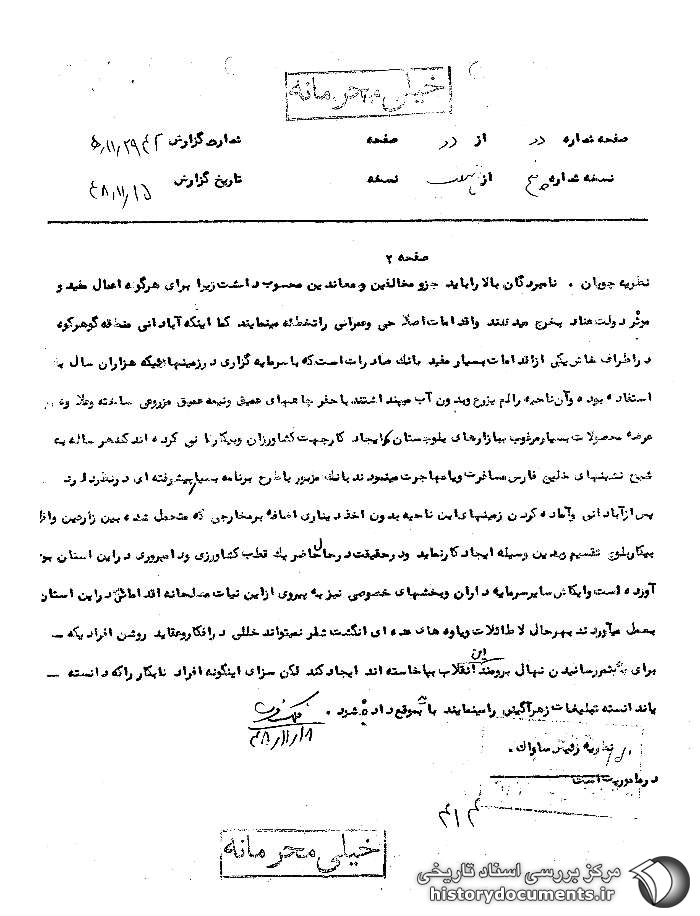 خیلی محرمانه
صفحه شماره دو از دو صفحه شماره گزارش
نسخه شماره از نسخه تاریخ گزارش ۴۸٫۱۱٫۱۵
صفحه ۲
نظریه جویان . نامبردگان بالا را باید جزو مخالفین و معاندین محسوب داشت زیرا برای هرگونه اعمال مفید و
موثر دولت عناد بخرج میدهند و اقدامات اصلاحی و عمرانی را تخطئه مینمایند کما اینکه آبادانی منطقه گوهرکوه
در اطراف خاش یکی از اقدامات بسیار مفید بانک صادرات است که با سرمایه گزاری در زمینهائیکه هزاران سال
استفاده بوده و آن ناحیه را لم یزرع و بدون آب میپنداشتند با حفر چاههای عمیق و نیمه عمیق مزروعی ساخته و علاوه
عرضه محصولات بسیار مرغوب ببازارهای بلوچستان ایجاد کار جهت کشاورزان و بیکارانی کرده اند که هر ساله به
شیخ نشینهای خلیج فارس مسافرت و یا مهاجرت مینمودند بانک مزبور با طرح برنامه بسیار پیشرفته ای در نظر دارد
پس از آبادانی و آماده کردن زمینهای این ناحیه بدون اخذ دیناری اضافه بر مخارجی که متحمل شده بین زارعین و افراد
بیکار بلوچ تقسیم و بدین وسیله ایجاد کار نماید و در حقیقت در حال حاضر یک قطب کشاورزی و دامپروری در این استان
آورده است و ایکاش سایر سرمایه داران و بخشهای خصوصی نیز به پیروی از این نیات مصلحانه اقداماتی در این استان
بعمل میآوردند بهرحال لاطائلات و یاوه های عده ای انگشت شمار نمیتواند خللی در افکار و عقاید روشن افرادیکه —
برای بثمر رسانیدن نهال برومند این انقلاب بپاخاسته اند ایجاد کند لکن سزای اینگونه افراد نابکار را که دانسته —
یا ندانسته تبلیغات زهرآگینی را مینمایند باید بموقع داده شود .
۴۸٫۱۱٫۱۸
نظریه رئیس ساواک .
در ماموریت است
۴۱۴
خیلی محرمانه
مرکز بررسی اسناد تاریخی
historydocuments.ir